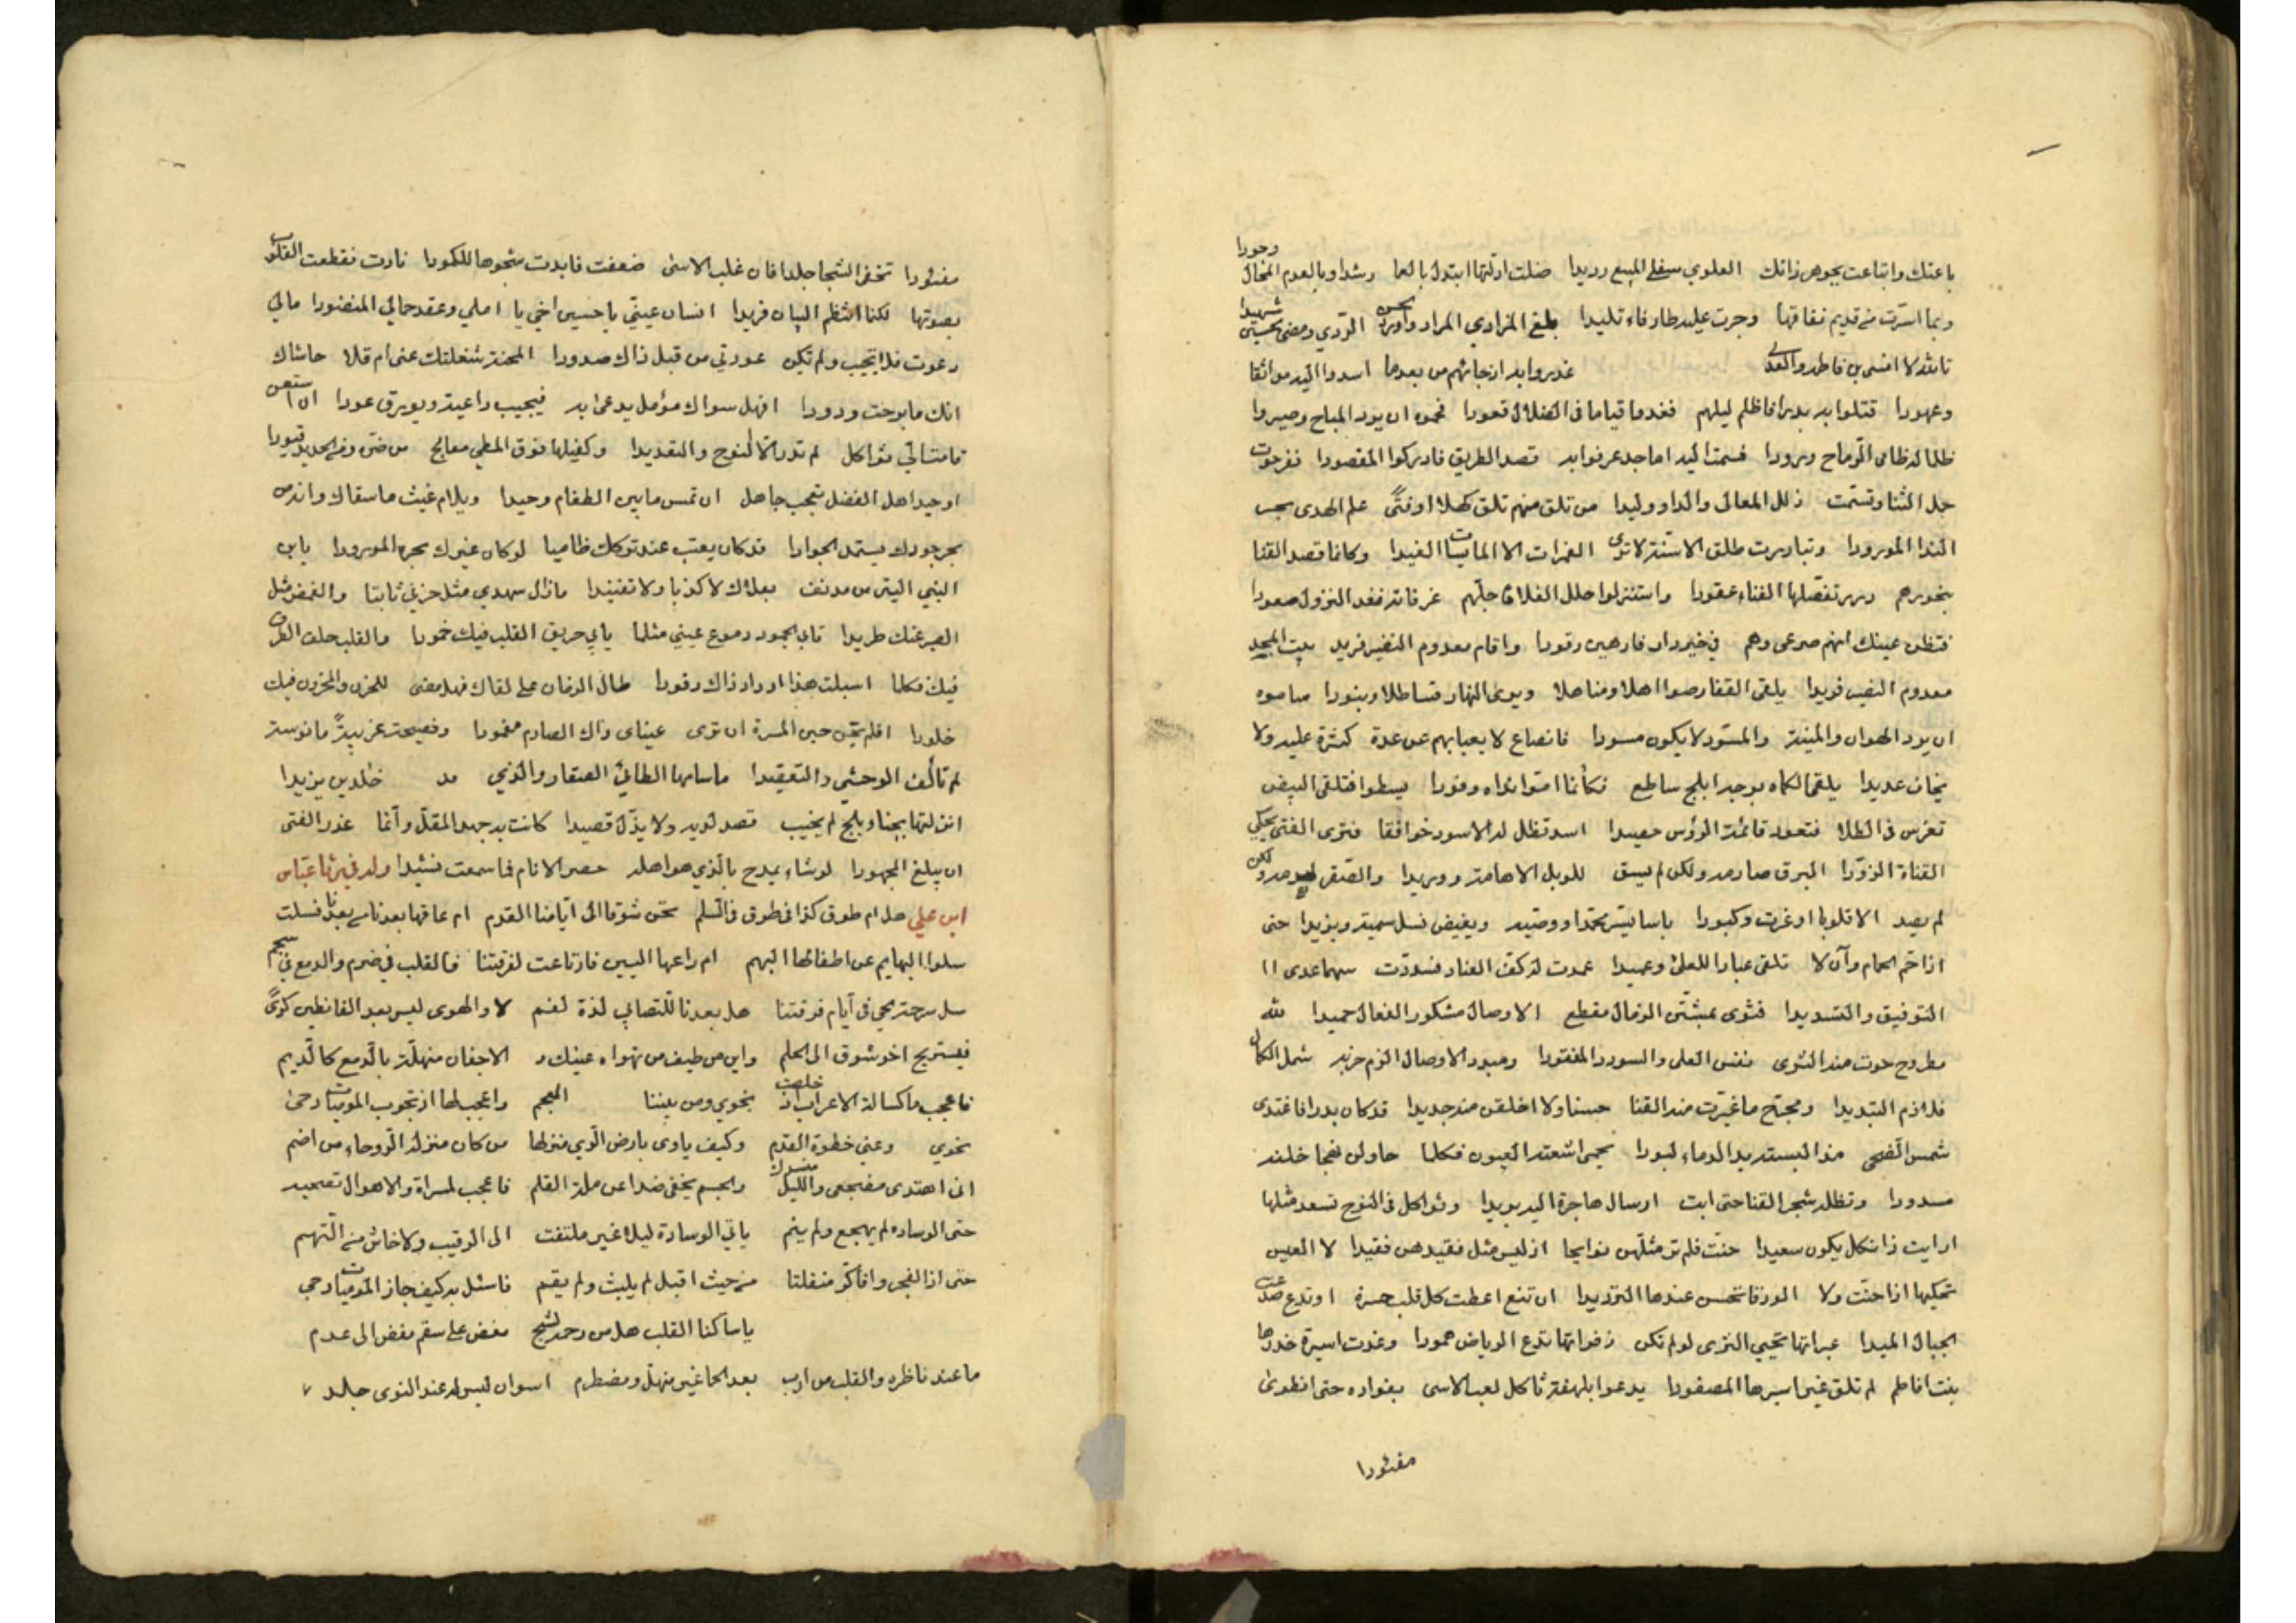 وجودا
باعتك وابتاعت بجوهر ذاتك العلوي سفلي المبيع رديدا ضلت ادلتها ابتدل بالعما رشدا وبالعدم المحال
وبما اسرت من قديم نفاقها وجرت عليه طارفا وتليدا بلغ المرادي المراد واورد الحسن الردي ومضى حسين شهيدا
تالله لا انسى بن فاطم والعدى غدروا به اذ جائهم من بعدما اسدوا اليه مواثقا
وعهودا قتلوا به بدرا فاظلم ليلهم فغدوا قياما في الضلال قعودا فحموه ان يرد المباح وصيروا
ظلما له ظامي الرماح ورودا فسمت اليه اماجد عرفوا به قصد الطريق فادركوا المقصودا نفر حوت
جل الثنا وتسنمت ذلل المعالى والدا ووليدا من تلق منهم تلق كهلا او فتى علم الهدى بحر
الندا المورودا وتبادرت طلق الاسنة لا ترى الغمرات الا المايسات الغيدا وكانما قصد القنا
بنحورهم درر تفصلها الفناء عقودا واستنزلوا حلل العلا فاحلهم غرفاته فغدا النزول صعودا
فتظن عينك انهم صرعى وهم في خير دار فارهين رقودا واقام معدوم النظير فريد بيت المجد
معدوم النصير فريدا يلقى القفار صواهلا ومناصلا ويرى النهار قساطلا وبنودا ساموه
ان يرد الهوان والمنية والمسود لا يكون مسودا فانصاع لا يعبا بهم عن عدة كثرت عليه ولا
يخاف عديدا يلقى الكماة بوجه ابلج ساطع فكأنما اموا نداه وفودا يسطو افتلقى البيض
تغرس في الطلا فتعود قائمة الرؤس حصيدا اسد تظل له الاسود خوافقا فترى الفتى يحكي
القناة الزودا البرق صارمه ولكن لم يسق للوبل الا هامة ووريدا والصقر لهذمه ولكن
لم يصد الا قلوبا اوغرت وكبودا باسا يسر محمدا ووصيه ويغيض نسل سمية ويزيدا حتى
اذا حم الحمام وآن لا تلقى عبادا للعلى وعميدا عمدت له كف العناد فسددت سهما عدى ال
التوفيق والتسديدا فثوى بمشتن الرمال مقطع الاوصال مشكور الفعال حميدا لله
مطروح حوت منه الثرى نفس العلى والسودد المفقودا ومبدد الاوصال الزم حزنه شمل الكمال
فلازم التبديدا ومجرح ما غيرت منه القنا حسنا ولا اخلقن منه جديدا قد كان بدرا فاغتدى
شمس الضحى مذ البسته يد الدماء لبودا يحمي اشعته العيون فكلما حاولن نهجا خلنه
مسدودا وتظله شجر القنا حتى ابت ارسال هاجرة اليه بريدا وثواكل في النوح تسعد مثلها
ارايت ذا ثكل يكون سعيدا حنت فلم تر مثلهن نوايحا اذ ليس مثل فقيدهن فقيدا لا العيس
تحكيها اذا حنت ولا الورقا تحسن عندها الترديدا ان تنع اعطت كل قلب حسرة او تدع صدعت
الجبال الميدا عبراتها تحيي الثرى لو لم تكن زفراتها تدع الرياض همودا وغدت اسيرة خدرها
بنت افاطم لم تلق غير اسيرها المصفودا يدعوا بلهفة ثاكل لعب الاسى بفواده حتى انطوى
مفئودا
مفئودا تخفى الشجا جلدا فان غلب الاسى ضعفت فابدت شجوها المكمودا نادت فقطعت القلوب
بصوتها لكنما انتظم البيان فريدا انسان عيني يا حسين اخي يا املي وعقد جماني المنضودا مالي
دعوت فلا تجيب ولم تكن عودتني من قبل ذاك صدودا المحنة شغلتك عني ام قلا حاشاك
انك ما برحت ودودا افهل سواك مؤمل يدعى به فيجيب داعية ويورق عودا ان استعن
قامت الي ثواكل لم تدر الا النوح والتعديدا وكفيلها فوق المطي معالج من ضره ومن الحديد قيودا
اوحيد اهل الفضل يعجب جاهل ان تمس ما بين الطغام وحيدا ويلام غيث ما سقاك وانه من
بحر جودك يستمد الجودا قد كان يعتب عند تركك ظاميا لو كان غيرك بحره المورودا يا بن
النبي الية من مدنف بعلاك لا كذبا ولا تفنيدا ما زال سهدي مثل حزني ثابتا والغمض مثل
الصبر عنك طريدا تابى الجمود دموع عيني مثلما يابى حريق القلب فيك خمودا والقلب حلف الطرف
فيك فكلما اسبلت هذا ازداد ذاك وقودا طال الزمان على لقاك فهل مضى للحزن والمحزون فيك
خلودا افلم يحن حين المسرة ان ترى عيناي ذاك الصارم مغمودا وفصيحة عربية مانوسة
لم تالف الوحشي والتعقيدا ما سامها الطائي الصغار والذي مد خالد بن يزيدا
انزلتها بجناب ابلج لم يخيب قصد لديه ولا يذل قصيدا كانت به جهد المقل وانما عذر الفتى
ان يبلغ المجهودا لو شاء يمدح بالذي هو اهله حصر الانام فما سمعت نشيدا وله في رثا عباس
ابن علي هل ام طوق كذا في طوق ذي سلم تحن شوقا الى ايامنا القدم ام عاقها بعد ناسي بعدنا فسلت
سلوا البهايم عن اطفالها البهم ام راعها البين فارتاعت لفرقتنا فالقلب في ضرم والدمع في سجم
سل سرحة الحي في ايام فرقتنا هل بعدنا للتصابي لذة لفم لا والهوى ليس بعد الظاعنين كرى
فيستريح اخو شوق الى الحلم واين من طيف من تهواه عينك و الاجفان منهلة بالدمع كالديم
فاعجب ما كسالة الاعراب اذ خلصت نحوي ومن بيننا العجم واعجب لها اذ تجوب الموميات دجى
نحوي وعني خطوة القدم وكيف ياوى بارض الري منزلها من كان منزله الروحاء من اضم
انى اهتدى مضجعي والليل منسدل والجسم يخفى ضنا عن ملة القلم فاعجب لمسراه والاهوال تصحبه
حتى الوساده لم يهجع ولم ينم ياتي الوسادة ليلا غير ملتفت الى الرقيب ولا خاش من التهم
حتى اذا الفجر وافا كر منفلتا من حيث اقبل لم يلبث ولم يقم فاسئل به كيف جاز الموميات دجى
يا ساكنا القلب هل من رحمة لشج مغض على سقم مفض الى عدم
ما عند ناظره والقلب من ارب بعد الحما غير منهل ومضطرم اسوان ليس له عند النوى جلد